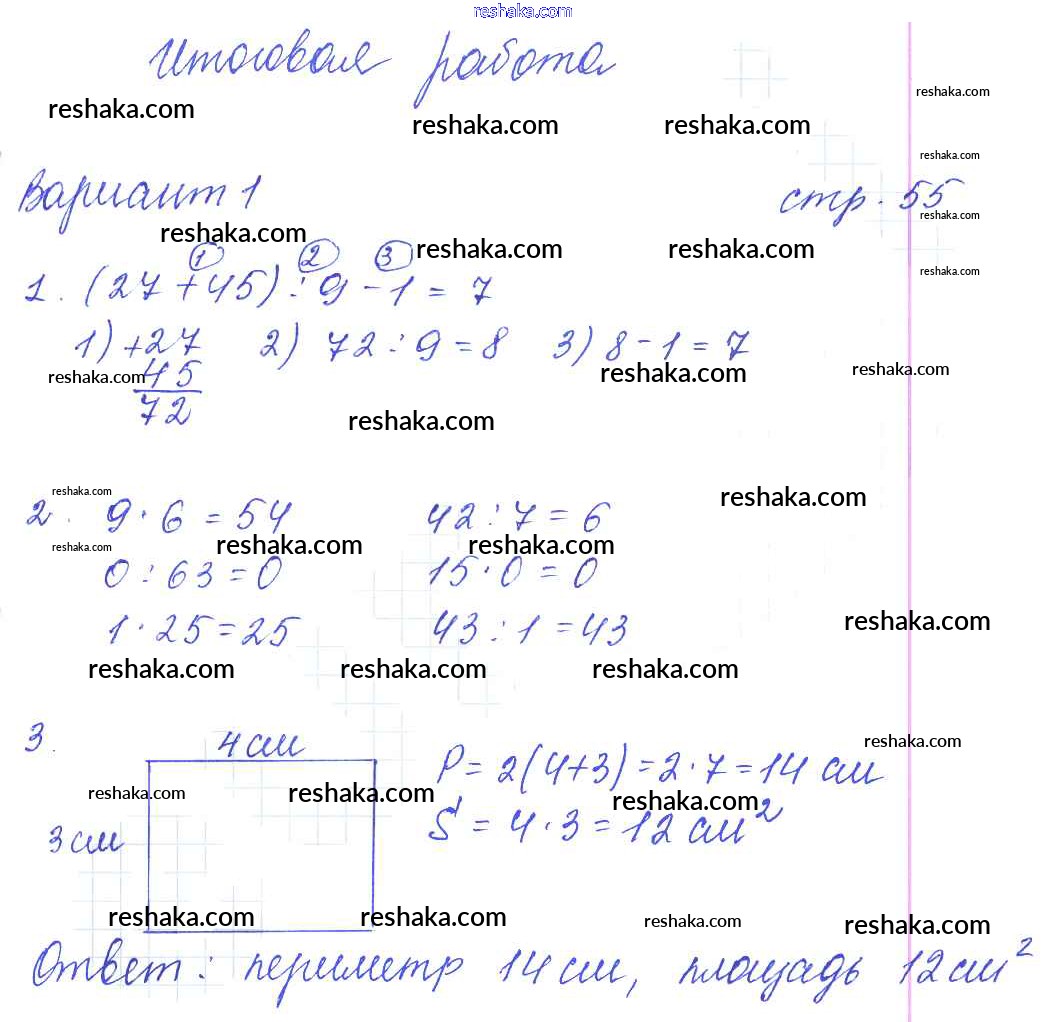 reshaka.com
Итоговая работа
reshaka.com reshaka.com reshaka.com reshaka.com
reshaka.com
Вариант 1 стр. 55
reshaka.com reshaka.com reshaka.com reshaka.com
reshaka.com
1 2 3
1. (27 + 45) : 9 - 1 = 7
1) +27 2) 72 : 9 = 8 3) 8 - 1 = 7
reshaka.com 45 reshaka.com reshaka.com
72 reshaka.com
reshaka.com reshaka.com
2. 9 · 6 = 54 42 : 7 = 6
reshaka.com reshaka.com reshaka.com
0 : 63 = 0 15 · 0 = 0
1 · 25 = 25 43 : 1 = 43 reshaka.com
reshaka.com reshaka.com reshaka.com
3. 4 см reshaka.com
P = 2(4+3) = 2 · 7 = 14 см
reshaka.com reshaka.com reshaka.com
3 см S = 4 · 3 = 12 см²
reshaka.com reshaka.com reshaka.com reshaka.com
Ответ: периметр 14 см, площадь 12 см²